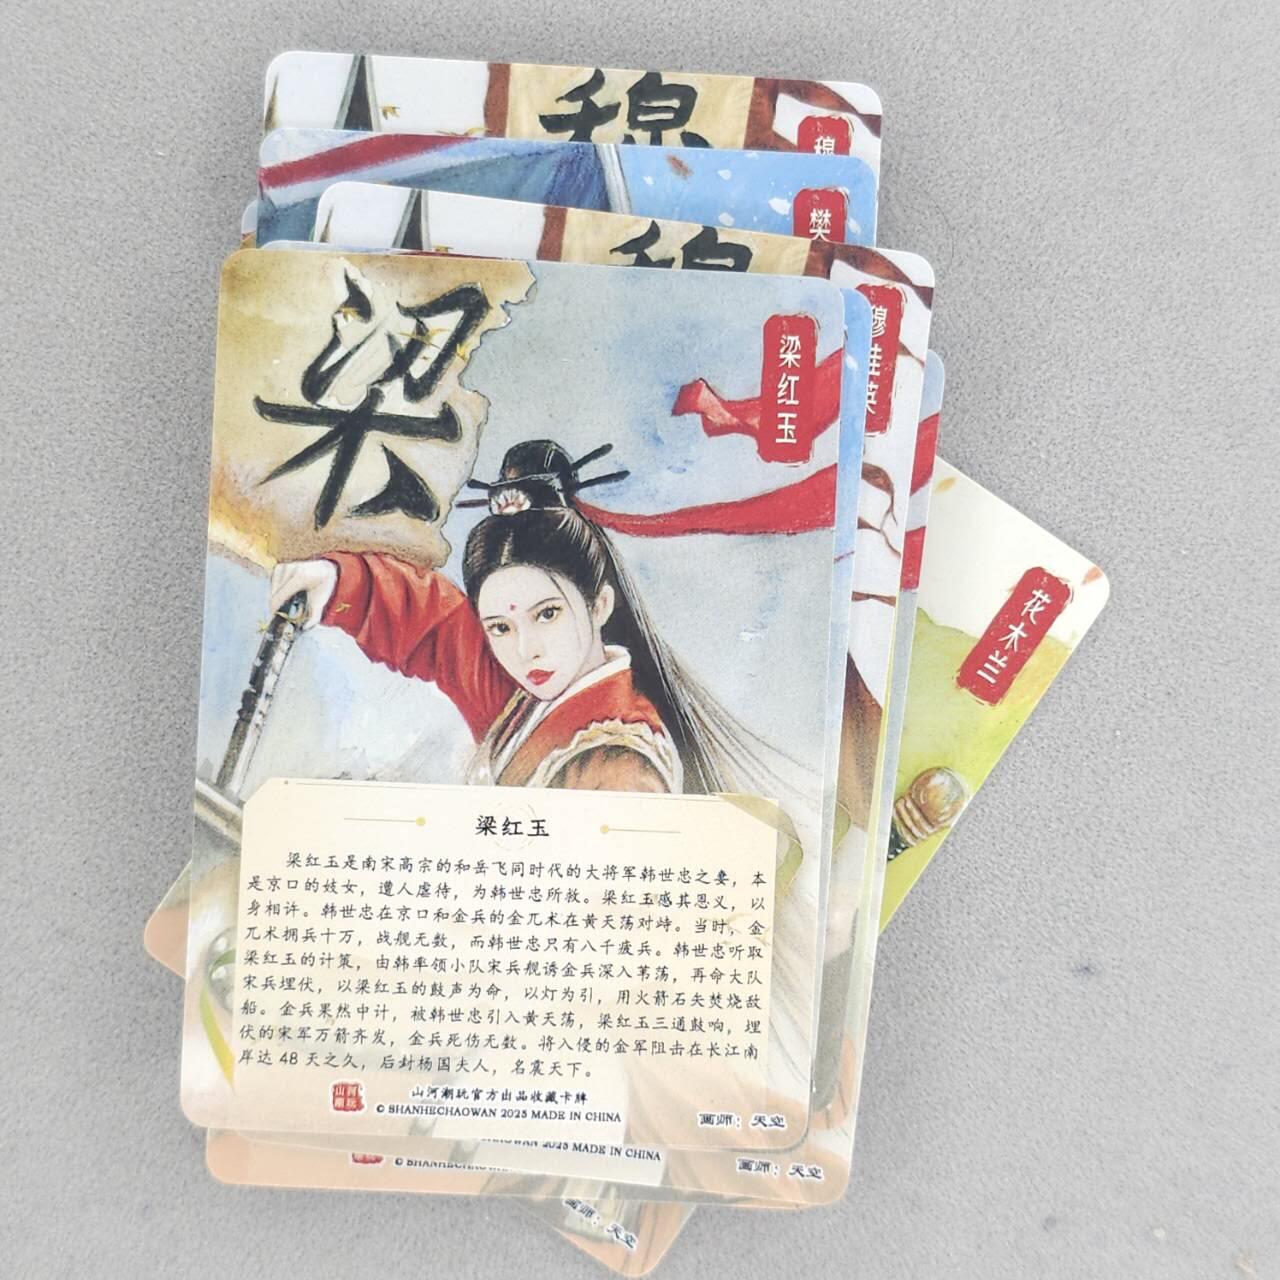 穆
穆
樊
穆
穆桂英
梁
梁红玉
花木兰
梁红玉
梁红玉是南宋高宗的和岳飞同时代的大将军韩世忠之妻，本
是京口的妓女，遭人虐待，为韩世忠所救。梁红玉感其恩义，以
身相许。韩世忠在京口和金兵的金兀术在黄天荡对峙。当时，金
兀术拥兵十万，战舰无数，而韩世忠只有八千疲兵。韩世忠听取
梁红玉的计策，由韩率领小队宋兵舰诱金兵深入苇荡，再命大队
宋兵埋伏，以梁红玉的鼓声为命，以灯为引，用火箭石矢焚烧敌
船。金兵果然中计，被韩世忠引入黄天荡，梁红玉三通鼓响，埋
伏的宋军万箭齐发，金兵死伤无数。将入侵的金军阻击在长江南
岸达 48 天之久，后封杨国夫人，名震天下。
山河
潮玩
山河潮玩官方出品收藏卡牌
© SHANHECHAOWAN 2025 MADE IN CHINA
画师：天空
2025 MADE IN CHINA
© SHANHECHAOWAN
画师：天空
画师：天空